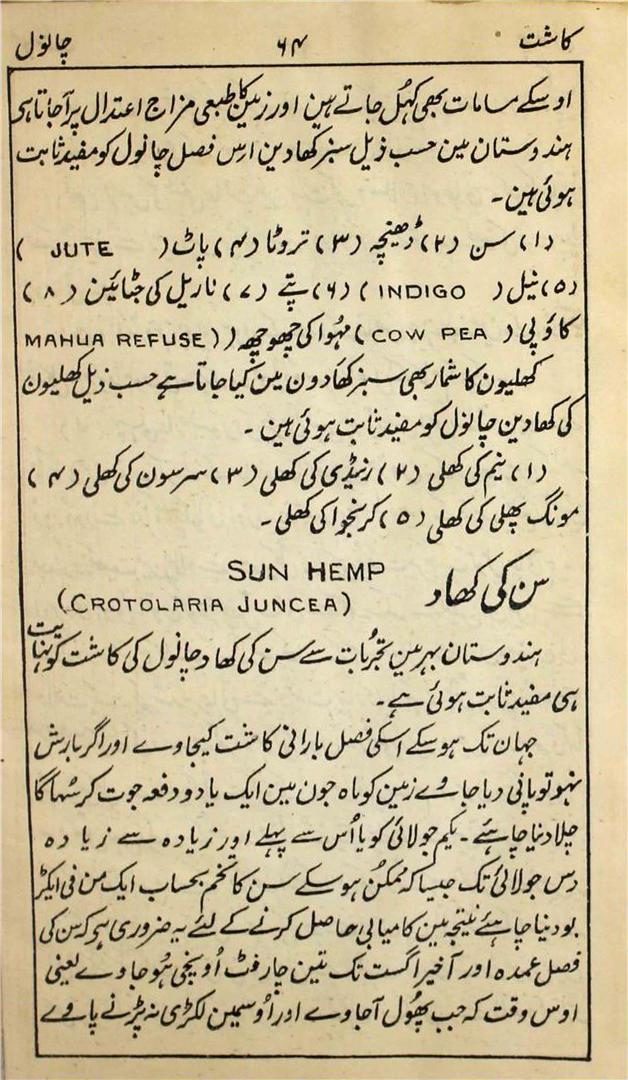 کاشت ۶۴ چانول
اوسکے مسامات بھی کہُل جاتے ہین اور زمین کا طبعی مزاج اعتدال پر آجاتا ہی
ہندوستان مین حسب ذیل سبز کھادین اس فصل چانول کو مفید ثابت
ہوئی ہین۔
(۱) سن (۲) ڈھینچہ (۳) تروٹا (۴) پاٹ ( JUTE )
(۵) نیل ( INDIGO ) (۶) پتے (۷) ناریل کی جٹائین (۸)
کاؤپی ( COW PEA ) مہُوا کی چھوچھ (( MAHUA REFUSE
کھلیون کا شمار بھی سبز کھادون مین کیا جاتا ہے حسب ذیل کھلیون
کی کھادین چانول کو مفید ثابت ہوئی ہین ۔
(۱) نیم کی کھلی (۲) رنیڈی کی کھلی (۳) سرسون کی کھلی (۴)
مونگ پھلی کی کھلی (۵) کرنجوا کی کھلی۔
سن کی کھاد SUN HEMP
(CROTOLARIA JUNCEA)
ہندوستان بہر مین تجربات سے سن کی کھاد چانول کی کاشت کو نہایت
ہی مفید ثابت ہوئی ہے۔
جہان تک ہو سکے اسکی فصل بارانی کاشت کیجاوے اور اگر بارش
نہو تو پانی دیا جاوے زمین کو ماہ جون مین ایک یا دو دفعہ جوت کر سُہاگا
چلا دنیا چاہئے ۔ یکم جولائی کو یا اُس سے پہلے اور زیادہ سے زیادہ
دس جولائی تک جیسا کہ ممکن ہو سکے سن کا تخم بحساب ایک من فی ایکڑ
بو دنیا چاہیئے نتیجہ مین کامیابی حاصل کرنے کے لئے یہ ضروری ہی کہ سن کی
فصل عمدہ اور آخیر اگست تک تین چار فٹ اُونچی ہُو جاوے لیعنی
اوس وقت کہ جب پھُول آجاوے اور اُوسمین لکڑی نہ پڑنے پاوے